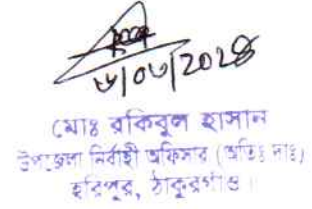 মোঃ রকিবুল হাসান
উপজেলা নির্বাহী অফিসার (অতিঃ দাঃ)
হরিপুর, ঠাকুরগাঁও।